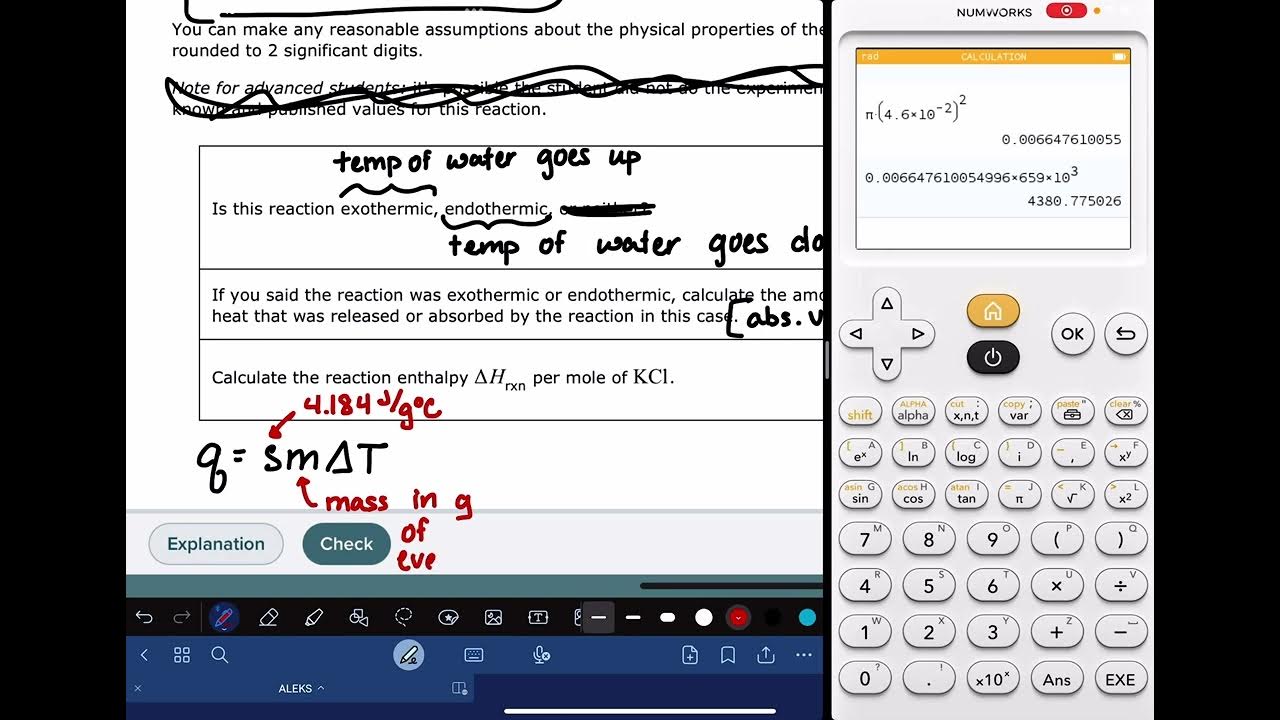 NUMWORKS
You can make any reasonable assumptions about the physical properties of the
rounded to 2 significant digits.
Note for advanced students: it's possible the student did not do the experimen
known and published values for this reaction.
temp of water goes up
Is this reaction exothermic, endothermic, or neither?
temp of water goes do
If you said the reaction was exothermic or endothermic, calculate the amo
heat that was released or absorbed by the reaction in this case.
[abs. v
Calculate the reaction enthalpy ΔHrxn per mole of KCl.
4.184 J/g°C
q = smΔT
mass in g
of
eve
Explanation
Check
ALEKS
rad CALCULATION
π·(4.6×10^-2)^2
0.006647610055
0.006647610054996×659×10^3
4380.775026
OK
shift ALPHA alpha cut : x,n,t copy ; var paste " clear %
[ A e^x ] B ln { C log } D i _ E , → F x^y
asin G sin acos H cos atan I tan = J π < K √ > L x^2
7 M 8 N 9 O ( P ) Q
4 R 5 S 6 T × U ÷ V
1 W 2 X 3 Y + Z − ␣
0 ? . ! ×10^x Ans EXE